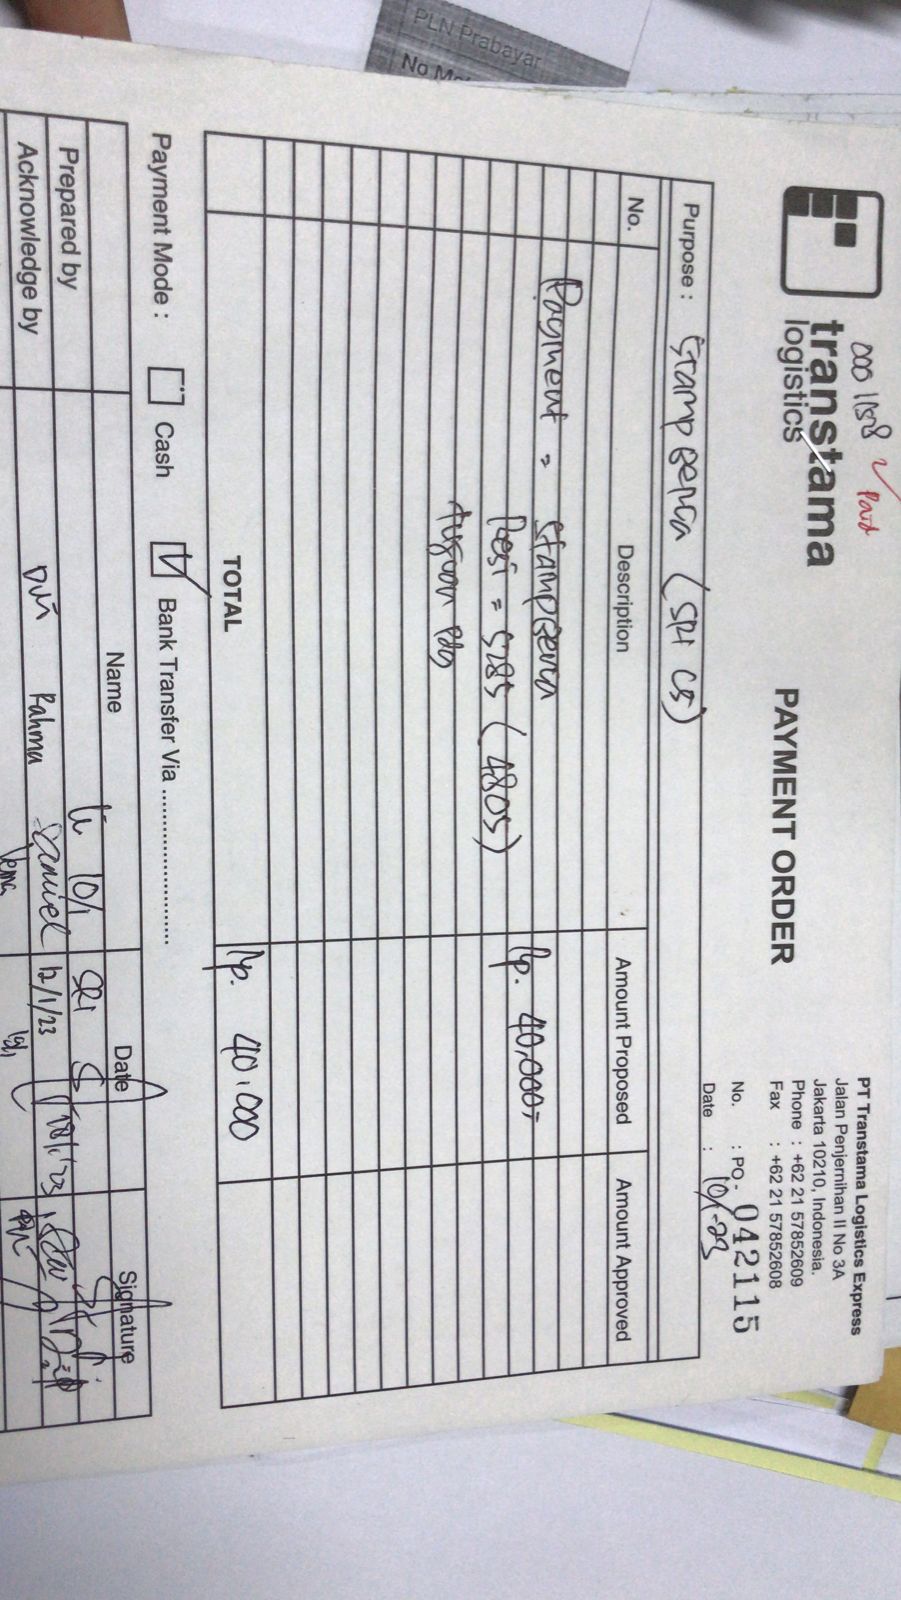 PLN Prabayar
000 1158 Paid
transtama
logistics
PAYMENT ORDER
PT Transtama Logistics Express
Jalan Penjernihan II No 3A
Jakarta 10210, Indonesia.
Phone : +62 21 57852609
Fax : +62 21 57852608
No. : PO- 042115
Date : 10/1-23
Purpose : Stamp Gerca (SRI CS)
No. Description Amount Proposed Amount Approved
Payment = Stamp Gerca Rp. 40.000,-
Resi = 5285 (4805)
Tujuan Pdg
TOTAL Rp. 40.000
Payment Mode : Cash Bank Transfer Via ........................
Name Date Signature
Prepared by 10/1 SRI
Acknowledge by Dwi Rahma Daniel 12/1/23